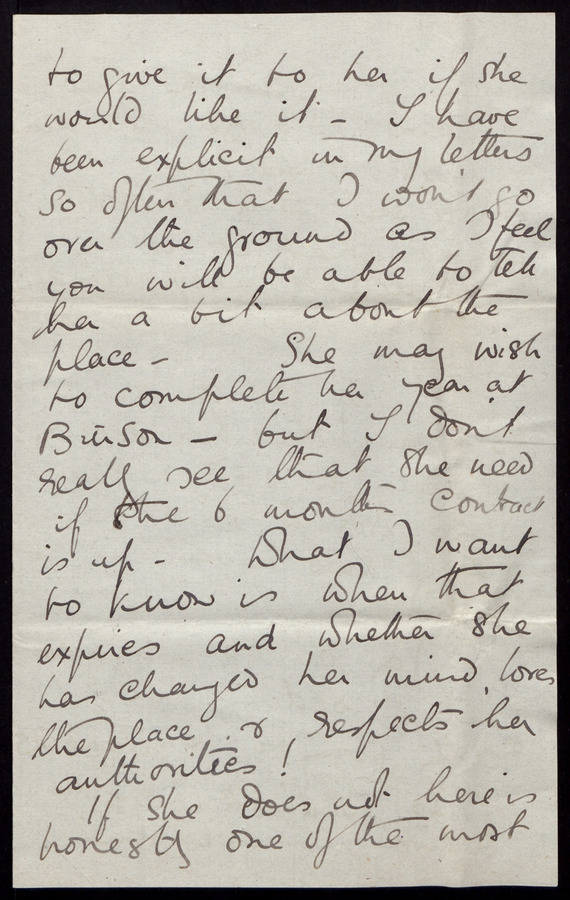 to give it to her if she
would like it - I have
been explicit in my letters
so often that I won't go
over the ground as I feel
you will be able to tell
her a bit about the
place - She may wish
to complete her year at
- but I don't
really see that she need
if the 6 months contract
is up - What I want
to know is when that
expires and whether she
has changed her mind, loves
the place & respects her
authorities!
If she does not here is
honestly one of the most